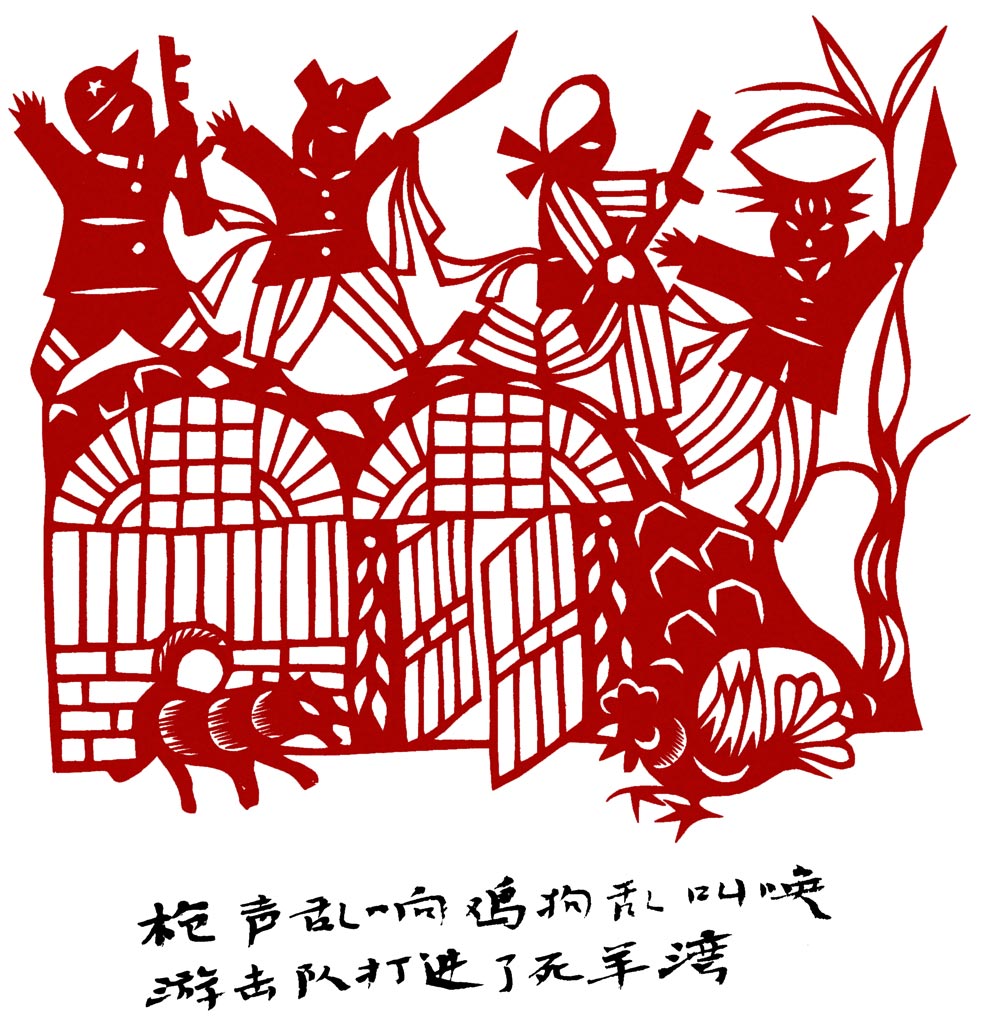 枪声乱响鸡狗乱叫唤
游击队打进了死羊湾